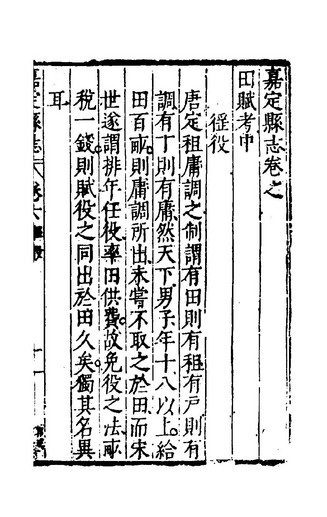 嘉定縣志卷之
田賦考中
徭役
唐定租庸調之制謂有田則有租有戶則有
調有丁則有庸然天下男子年十八以上給
田百畝則庸調所出未嘗不取之於田而宋
世遂謂排年任役率田供費故免役之法畝
稅一錢則賦役之同出於田久矣獨其名異
耳
嘉定縣志 卷六